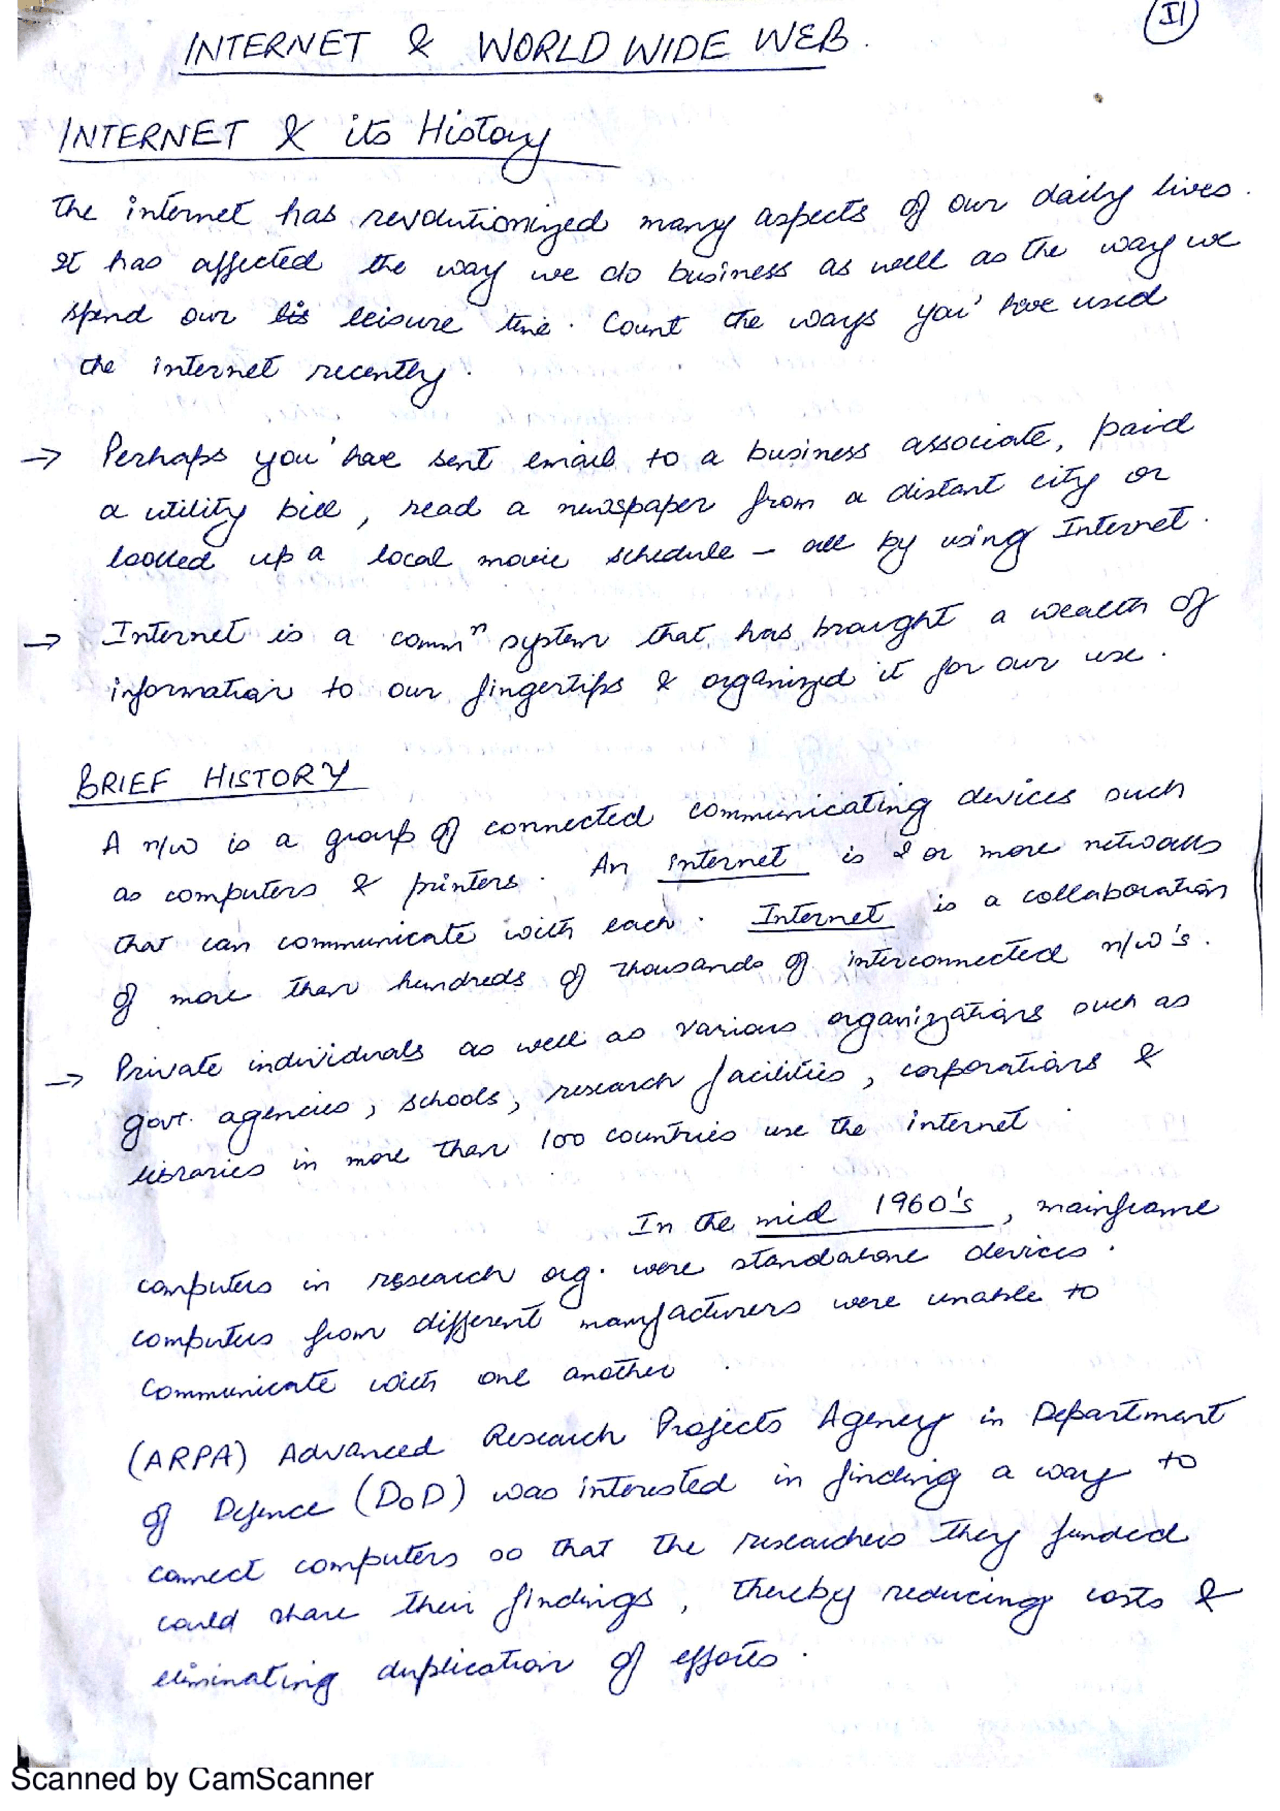 I1
INTERNET & WORLD WIDE WEB.
INTERNET & its History
The internet has revolutionized many aspects of our daily lives.
It has affected the way we do business as well as the way we
spend our lis leisure time. Count the ways you've used
the internet recently.
→ Perhaps you've sent email to a business associate, paid
a utility bill, read a newspaper from a distant city or
looked up a local movie schedule – all by using Internet.
→ Internet is a commⁿ system that has brought a wealth of
information to our fingertips & organized it for our use.
BRIEF HISTORY
A n/w is a group of connected communicating devices such
as computers & printers. An internet is 2 or more networks
that can communicate with each. Internet is a collaboration
of more than hundreds of thousands of interconnected n/w's.
→ Private individuals as well as various organizations such as
govt. agencies, schools, research facilities, corporations &
libraries in more than 100 countries use the internet.
In the mid 1960's, mainframe
computers in research org. were standalone devices.
computers from different manufacturers were unable to
communicate with one another.
(ARPA) Advanced Research Projects Agency in Department
of Defence (DoD) was interested in finding a way to
connect computers so that the researchers they funded
could share their findings, thereby reducing costs &
eliminating duplication of efforts.
Scanned by CamScanner